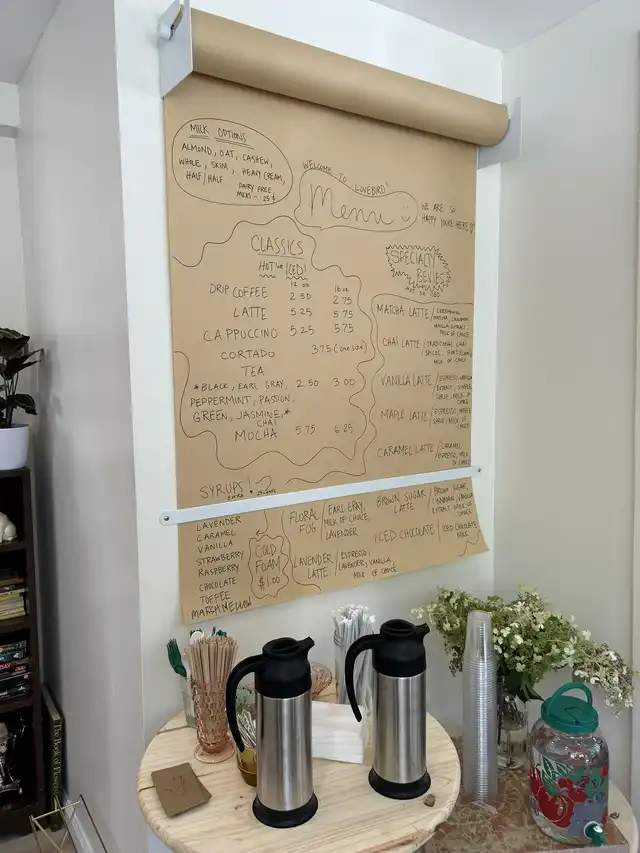 MILK OPTIONS
ALMOND, OAT, CASHEW,
WHOLE, SKIM, HEAVY CREAM,
HALF/HALF
DAIRY FREE
MILKS - 25¢
WELCOME TO
LOVEBIRD
Menu
WE ARE SO
HAPPY YOU'RE HERE
CLASSICS
HOT ICED
12 oz 16 oz
DRIP COFFEE 2.50 2.75
LATTE 5.25 5.75
CAPPUCCINO 5.25 5.75
CORTADO 3.75 (one size)
TEA
*BLACK, EARL GRAY, 2.50 3.00
PEPPERMINT, PASSION,
GREEN, JASMINE,*
CHAI
MOCHA 5.75 6.25
SPECIALTY
BEVIES
HOT OR ICED
MATCHA LATTE / CEREMONIAL
MATCHA, CINNAMON,
VANILLA EXTRACT,
MILK OF CHOICE
CHAI LATTE / TRADITIONAL CHAI
SPICES,
MILK OF CHOICE
VANILLA LATTE / ESPRESSO, VANILLA
EXTRACT, SIMPLE
SYRUP, MILK OF
CHOICE
MAPLE LATTE / ESPRESSO, MAPLE
SYRUP, MILK OF
CHOICE
CARAMEL LATTE / CARAMEL,
ESPRESSO, MILK OF
CHOICE
SYRUPS!
EXTRA
LAVENDER
CARAMEL
VANILLA
STRAWBERRY
RASPBERRY
CHOCOLATE
TOFFEE
MARSHMELLOW
COLD
FOAM
$1.00
FLORAL
FOG / EARL GRAY,
MILK OF CHOICE,
LAVENDER
LAVENDER
LATTE / ESPRESSO,
LAVENDER, VANILLA
MILK OF CHOICE
BROWN SUGAR
LATTE / BROWN SUGAR,
CINNAMON, VANILLA
EXTRACT, MILK OF
CHOICE
ICED CHOCOLATE / ICED CHOCOLATE
MILK
The Book of